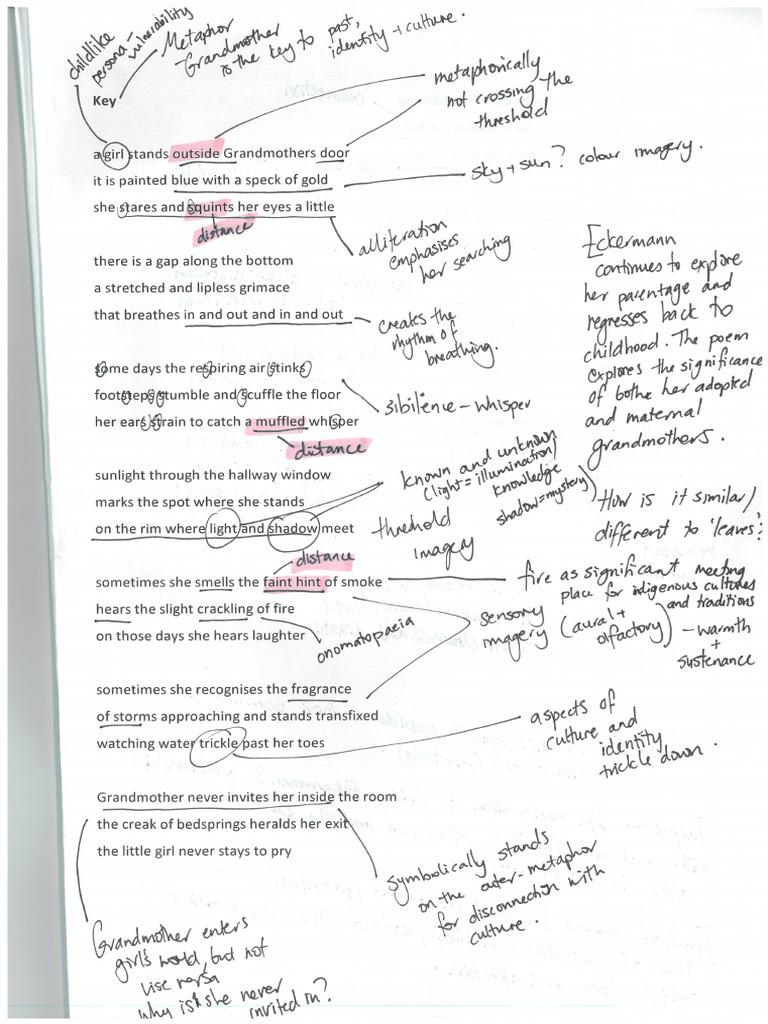 childlike
persona -
vulnerability
Metaphor
- Grandmother
is the key to past,
identity + culture.
Key
metaphorically
not crossing the
threshold
a girl stands outside Grandmothers door
it is painted blue with a speck of gold
sky + sun? colour imagery.
she stares and squints her eyes a little
distance
alliteration
emphasises
her searching
there is a gap along the bottom
a stretched and lipless grimace
that breathes in and out and in and out
creates the
rhythm of
breathing.
Eckermann
continues to explore
her parentage and
regresses back to
childhood. The poem
explores the significance
of bothe her adopted
and maternal
grandmothers.
some days the respiring air stinks
footsteps stumble and scuffle the floor
her ears strain to catch a muffled whisper
sibilence - whisper
distance
sunlight through the hallway window
marks the spot where she stands
on the rim where light and shadow meet
known and unknown
(light = illumination/
knowledge
shadow = mystery)
threshold
imagery
How is it similar/
different to 'leaves'?
distance
sometimes she smells the faint hint of smoke
hears the slight crackling of fire
on those days she hears laughter
onomatopaeia
fire as significant meeting
place for indigenous cultures
and traditions
- warmth
+
sustenance
sensory
imagery (aural +
olfactory)
sometimes she recognises the fragrance
of storms approaching and stands transfixed
watching water trickle past her toes
aspects of
culture and
identity
trickle down.
Grandmother never invites her inside the room
the creak of bedsprings heralds her exit
the little girl never stays to pry
symbolically stands
on the outer - metaphor
for disconnection with
culture.
Grandmother enters
girl's world, but not
vise versa
why is she never
invited in?